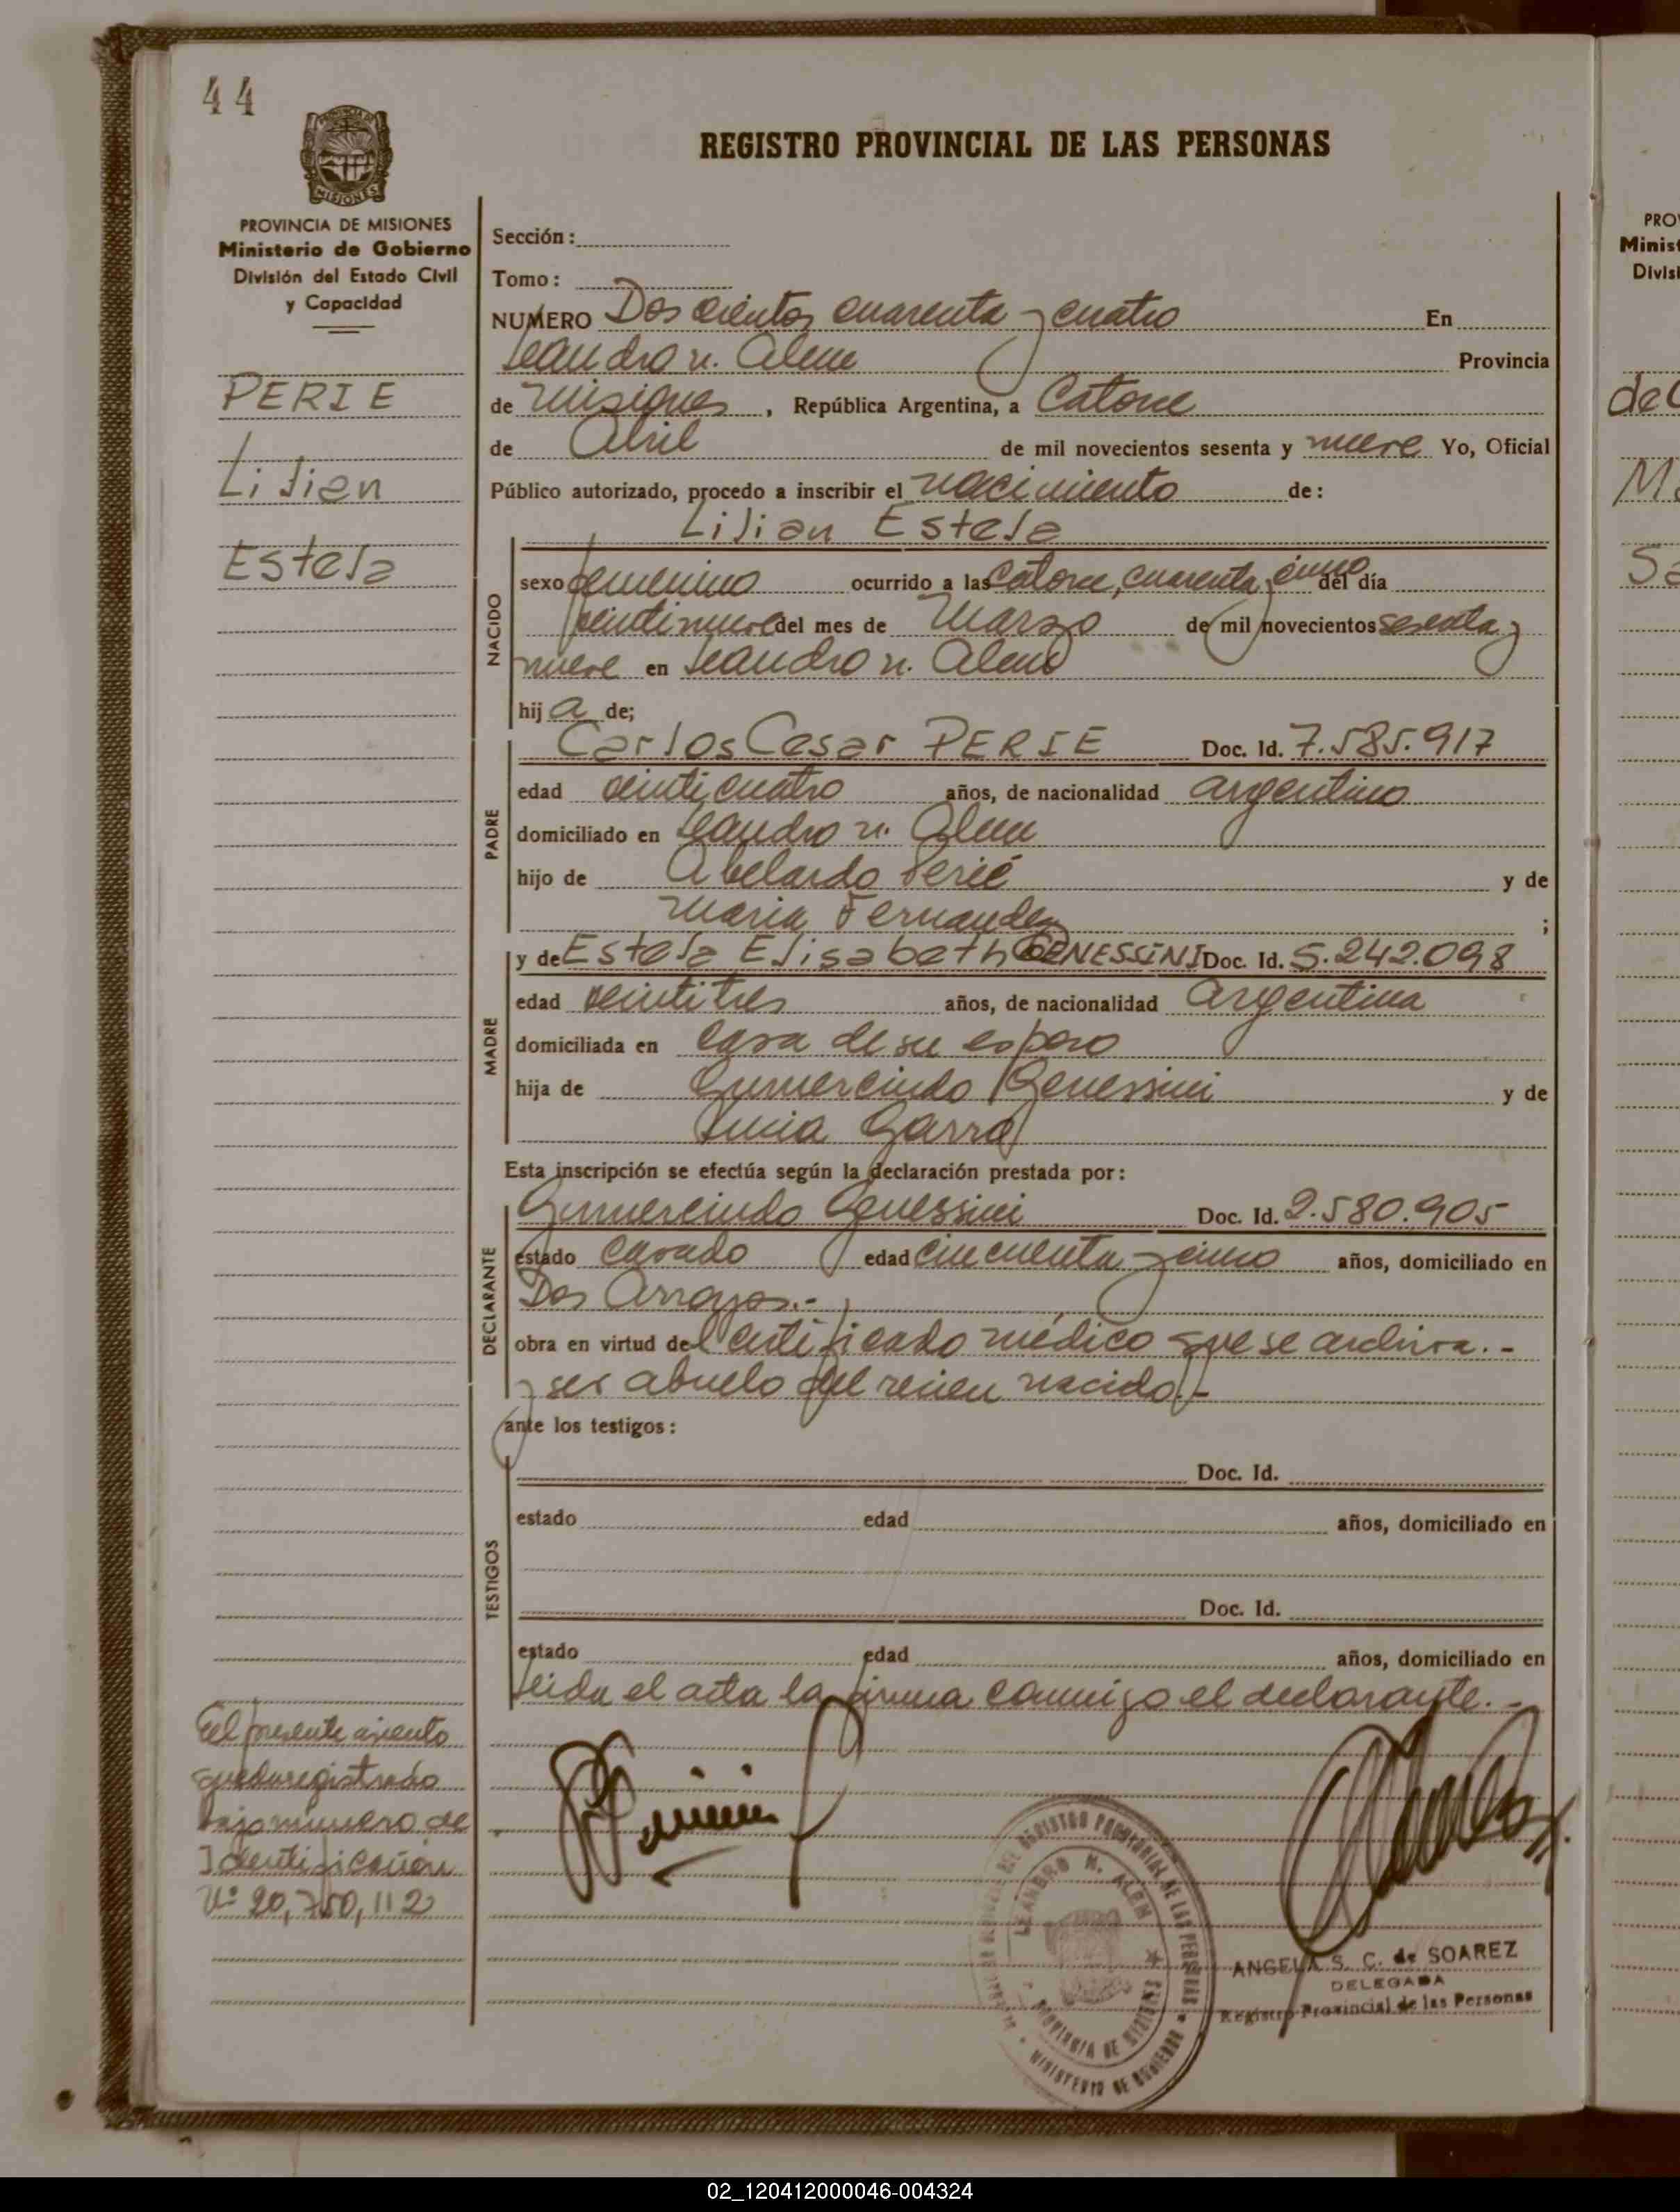 44
PROVINCIA DE
MISIONES
REGISTRO PROVINCIAL DE LAS PERSONAS
PROVINCIA DE MISIONES
Ministerio de Gobierno
División del Estado Civil
y Capacidad
PERIE
Lilian
Estela
Sección:
Tomo:
NUMERO Doscientos cuarenta y cuatro En
Leandro n. Alem Provincia
de Misiones, República Argentina, a Catorce
de Abril de mil novecientos sesenta y nueve Yo, Oficial
Público autorizado, procedo a inscribir el nacimiento de:
Lilian Estela
NACIDO
sexo femenino ocurrido a las Catorce, cuarenta y cinco del día
veintinueve del mes de Marzo de mil novecientos sesenta y
nueve en Leandro n. Alem
hija de;
PADRE
Carlos Cesar PERIE Doc. Id. 7.585.917
edad veinticuatro años, de nacionalidad argentino
domiciliado en Leandro n. Alem
hijo de Abelardo Perié y de
Maria Fernandez ;
MADRE
y de Estela Elisabeth GENESSINI Doc. Id. 5.242.098
edad veintitres años, de nacionalidad Argentina
domiciliada en casa de su esposo
hija de Gumercindo Genessini y de
Garro
Esta inscripción se efectúa según la declaración prestada por:
DECLARANTE
Gumercindo Genessini Doc. Id. 2.580.905
estado casado edad cincuenta y cinco años, domiciliado en
Dos Arroyos.-
obra en virtud del certificado médico que se archiva.-
y ser abuelo del recien nacido.-
ante los testigos:
TESTIGOS
Doc. Id.
estado edad años, domiciliado en
Doc. Id.
estado edad años, domiciliado en
Leida el acta la firma conmigo el declarante.-
El presente asiento
queda registrado
bajo número de
Identificación
Nº 20,750,112
REGISTRO PROVINCIAL DE LAS PERSONAS
LEANDRO N. ALEM
PROVINCIA DE MISIONES
MINISTERIO DE GOBIERNO
ANGELA S. C. de SOAREZ
DELEGADA
Registro Provincial de las Personas
PRO
Minist
Divisi
de
M
02_120412000046-004324